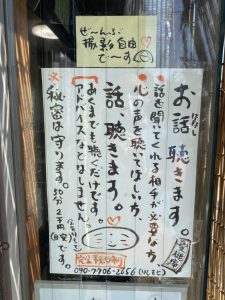 ぜ〜んぶ
撮影自由♡
で〜す
お話聴きます。
はなし
・話を聞いてくれる相手が必要な方、
・心の声を聴いてほしい方。
話、聴きます。
あくまでも聴くだけです。
アドバイスなどはしません。
※秘密は守ります。
30分2千円
です。
完全予約制
090-7706-2656